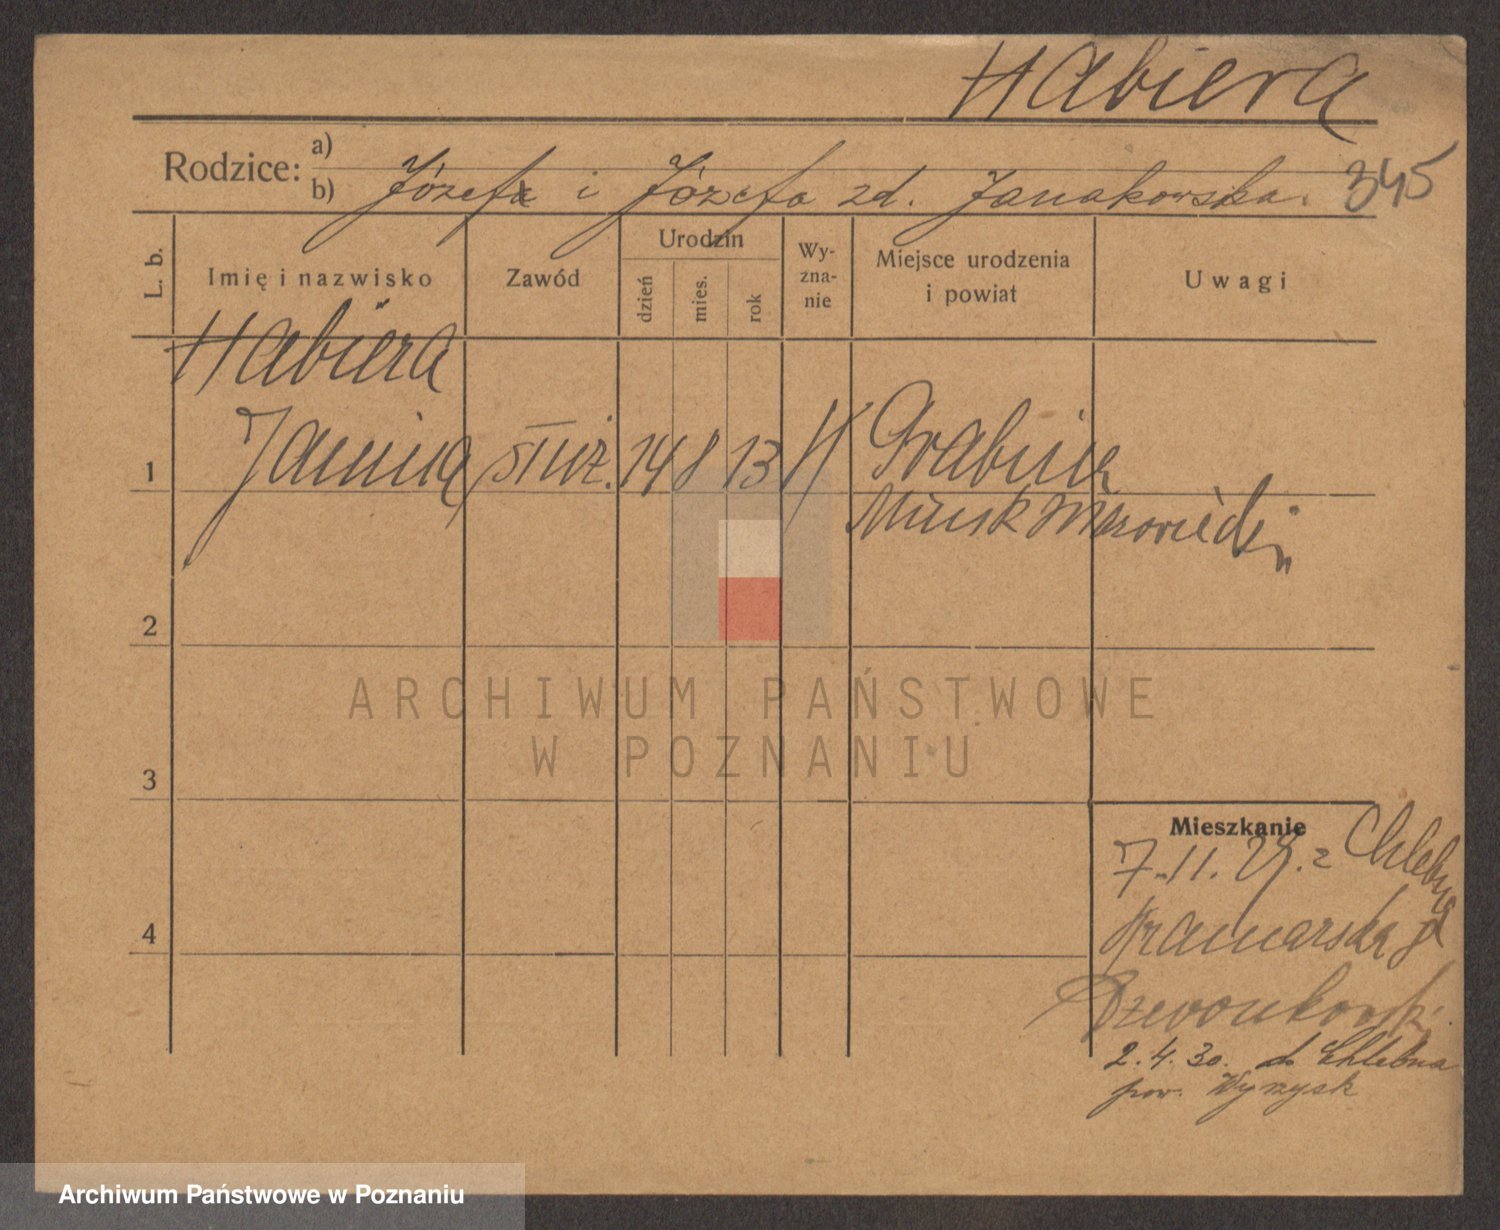 Habiera
Rodzice: a)
b) Józefa i Józefa zd. Janakowska. 345
L. b. Imię i nazwisko Zawód Urodzin dzień mies. rok Wy-zna-nie Miejsce urodzenia i powiat Uwagi
Habiera
1 Janina służ. 14 8 13 Grabina
Mińsk Mazowiecki
2
ARCHIWUM PAŃSTWOWE
W POZNANIU
3
Mieszkanie
7.11.29. z Chlebna
4 Kramarska
2.4.30. do Chlebna
pow. Wyrzysk
Archiwum Państwowe w Poznaniu